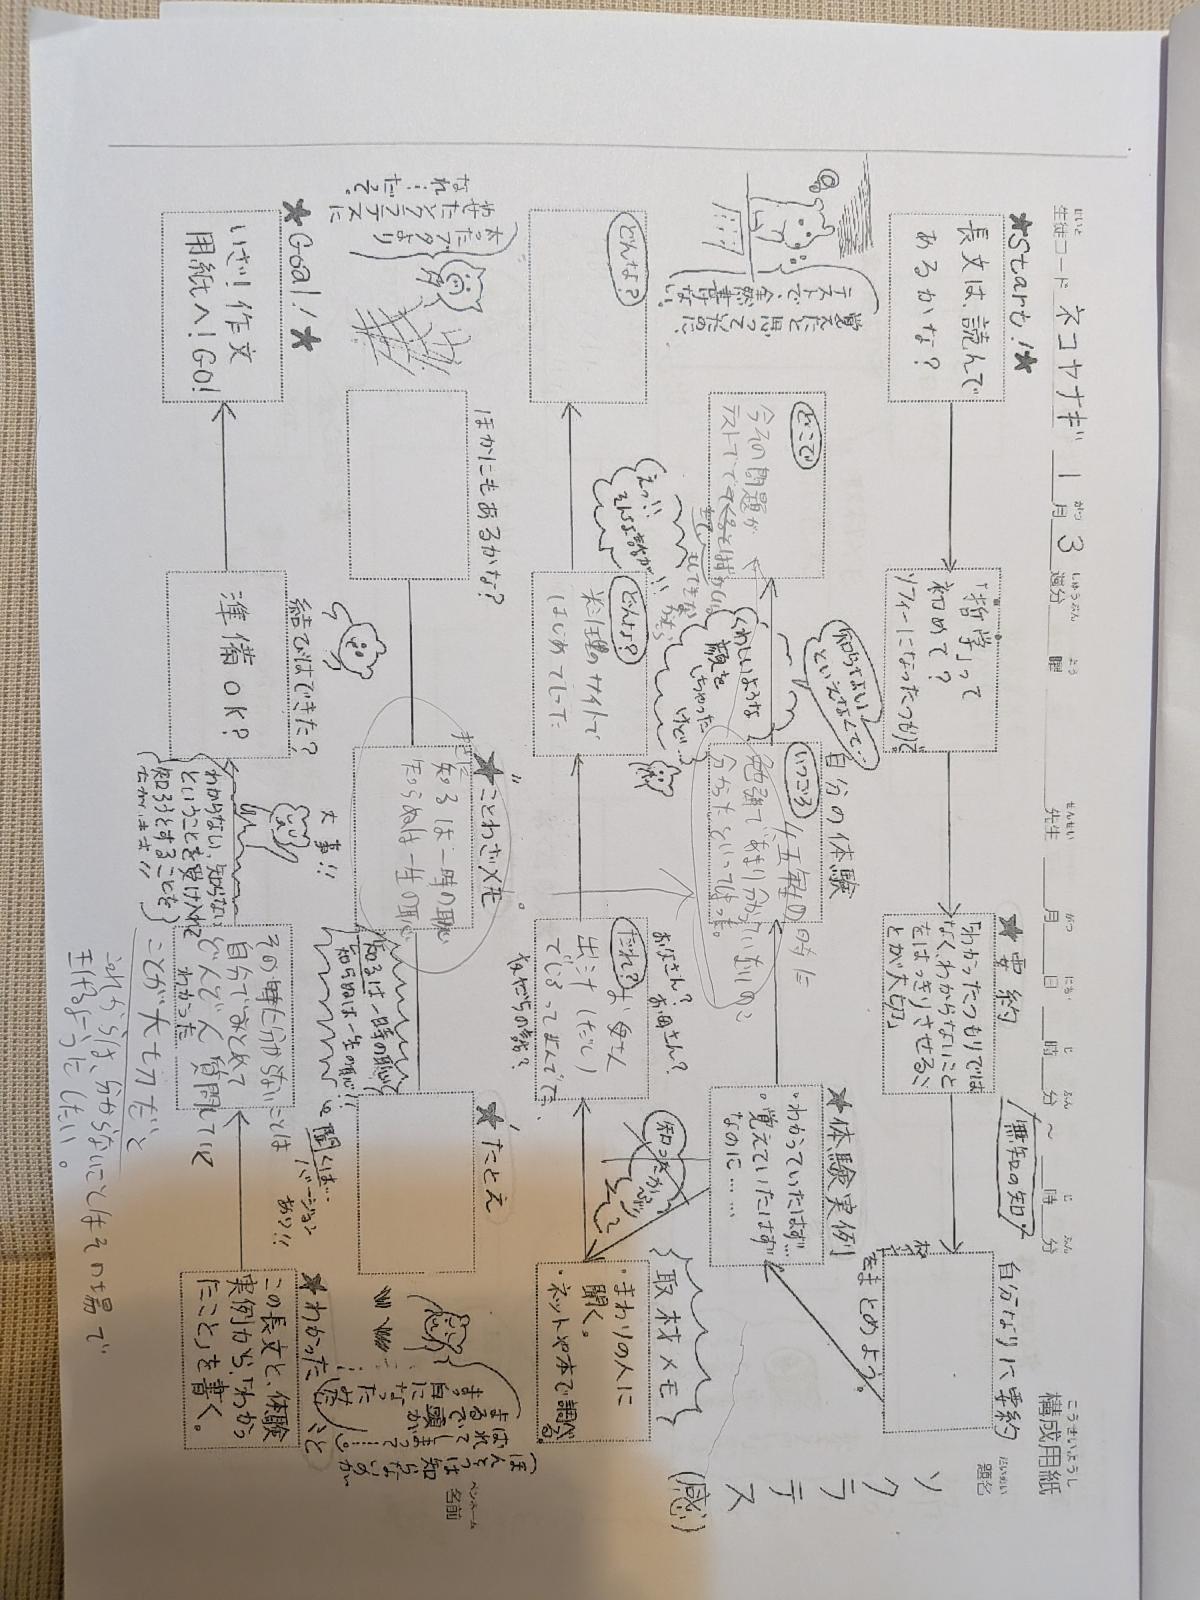 構成用紙
こうせいようし
題名
ソクラテス
(感)
名前
ペンネーム
生徒コード ネコヤナギ 1月3週分 曜 先生 月 日 時 分 ~ 時 分
せいと
がつ
しゅうぶん
よう
せんせい
がつ
にち
じ
ふん
じ
ふん
★Start!★
長文は、読んで
あるかな?
「哲学」って
初めて?
ソフィーになったつもりで
★要約
「わかったつもりでは
なくわからないこと
をはっきりさせるこ
とが大切」
無知の知
自分なりに要約
をまとめよう。
★体験実例
・わかっていたはず…
・覚えていたはず
なのに……
自分の体験
いつごろ
四五年の時に
勉強であまり分かっていないのに
分かったといってしまった。
知らなくてよい
といえなくて…
くわしいような
顔を
しちゃった
けど…
どこで
今その問題が
覚えたと思っていたのに、
テストで、全然書けない。
取材メモ
・まわりの人に
聞く。
・ネットや本で調べる。
知ったかぶり
お父さん?お母さん?
だれ?
友だちの話?
どんな?
えっ!!
そんな話が!!
どんな?
★ことわざメモ
知るは一時の恥
知らぬは一生の恥
「知るは一時の恥
知らぬは一生の恥」!!
「聞くは…
バージョン
あり!!
★たとえ
ほかにもあるかな?
ほんとうは知らないのが
ばれてしまって…。
まるで頭が
まっ白になった
太ったブタより
やせたソクラテスに
なれ…だって。
★わかったこと
この長文と、体験
実例から、「わかっ
たこと」を書く。
自分でみとめて
どんどん質問していく
ことが大切だと
わかった
これからは、分からないことはその場で
大事!!
わからない、知らない
ということを受け入れて
知ろうとすることを
結びはできた?
準備OK?
★Goal!★
いざ!作文
用紙へ!GO!